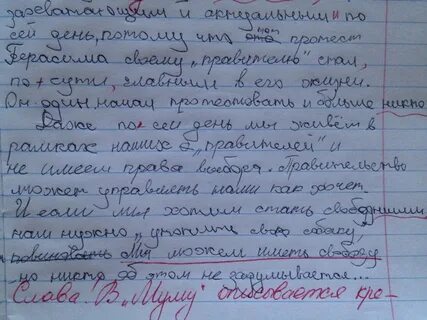 захватающим и актуальным" по
сей день, потому что этот протест
Герасима своему "правителю" стал,
по сути, главным в его жизни.
Он один начал протестовать и больше никто
Даже по сей день мы живём в
рамках наших "правителей" и
не имеем права выбора. Правительство
может управлять нами как хочет.
И если мы хотим стать свободными
нам нужно "утопить свою собаку,
Мы можем иметь свободу
но никто об этом не задумывается...
Слава! В "Муму" описывается кре-